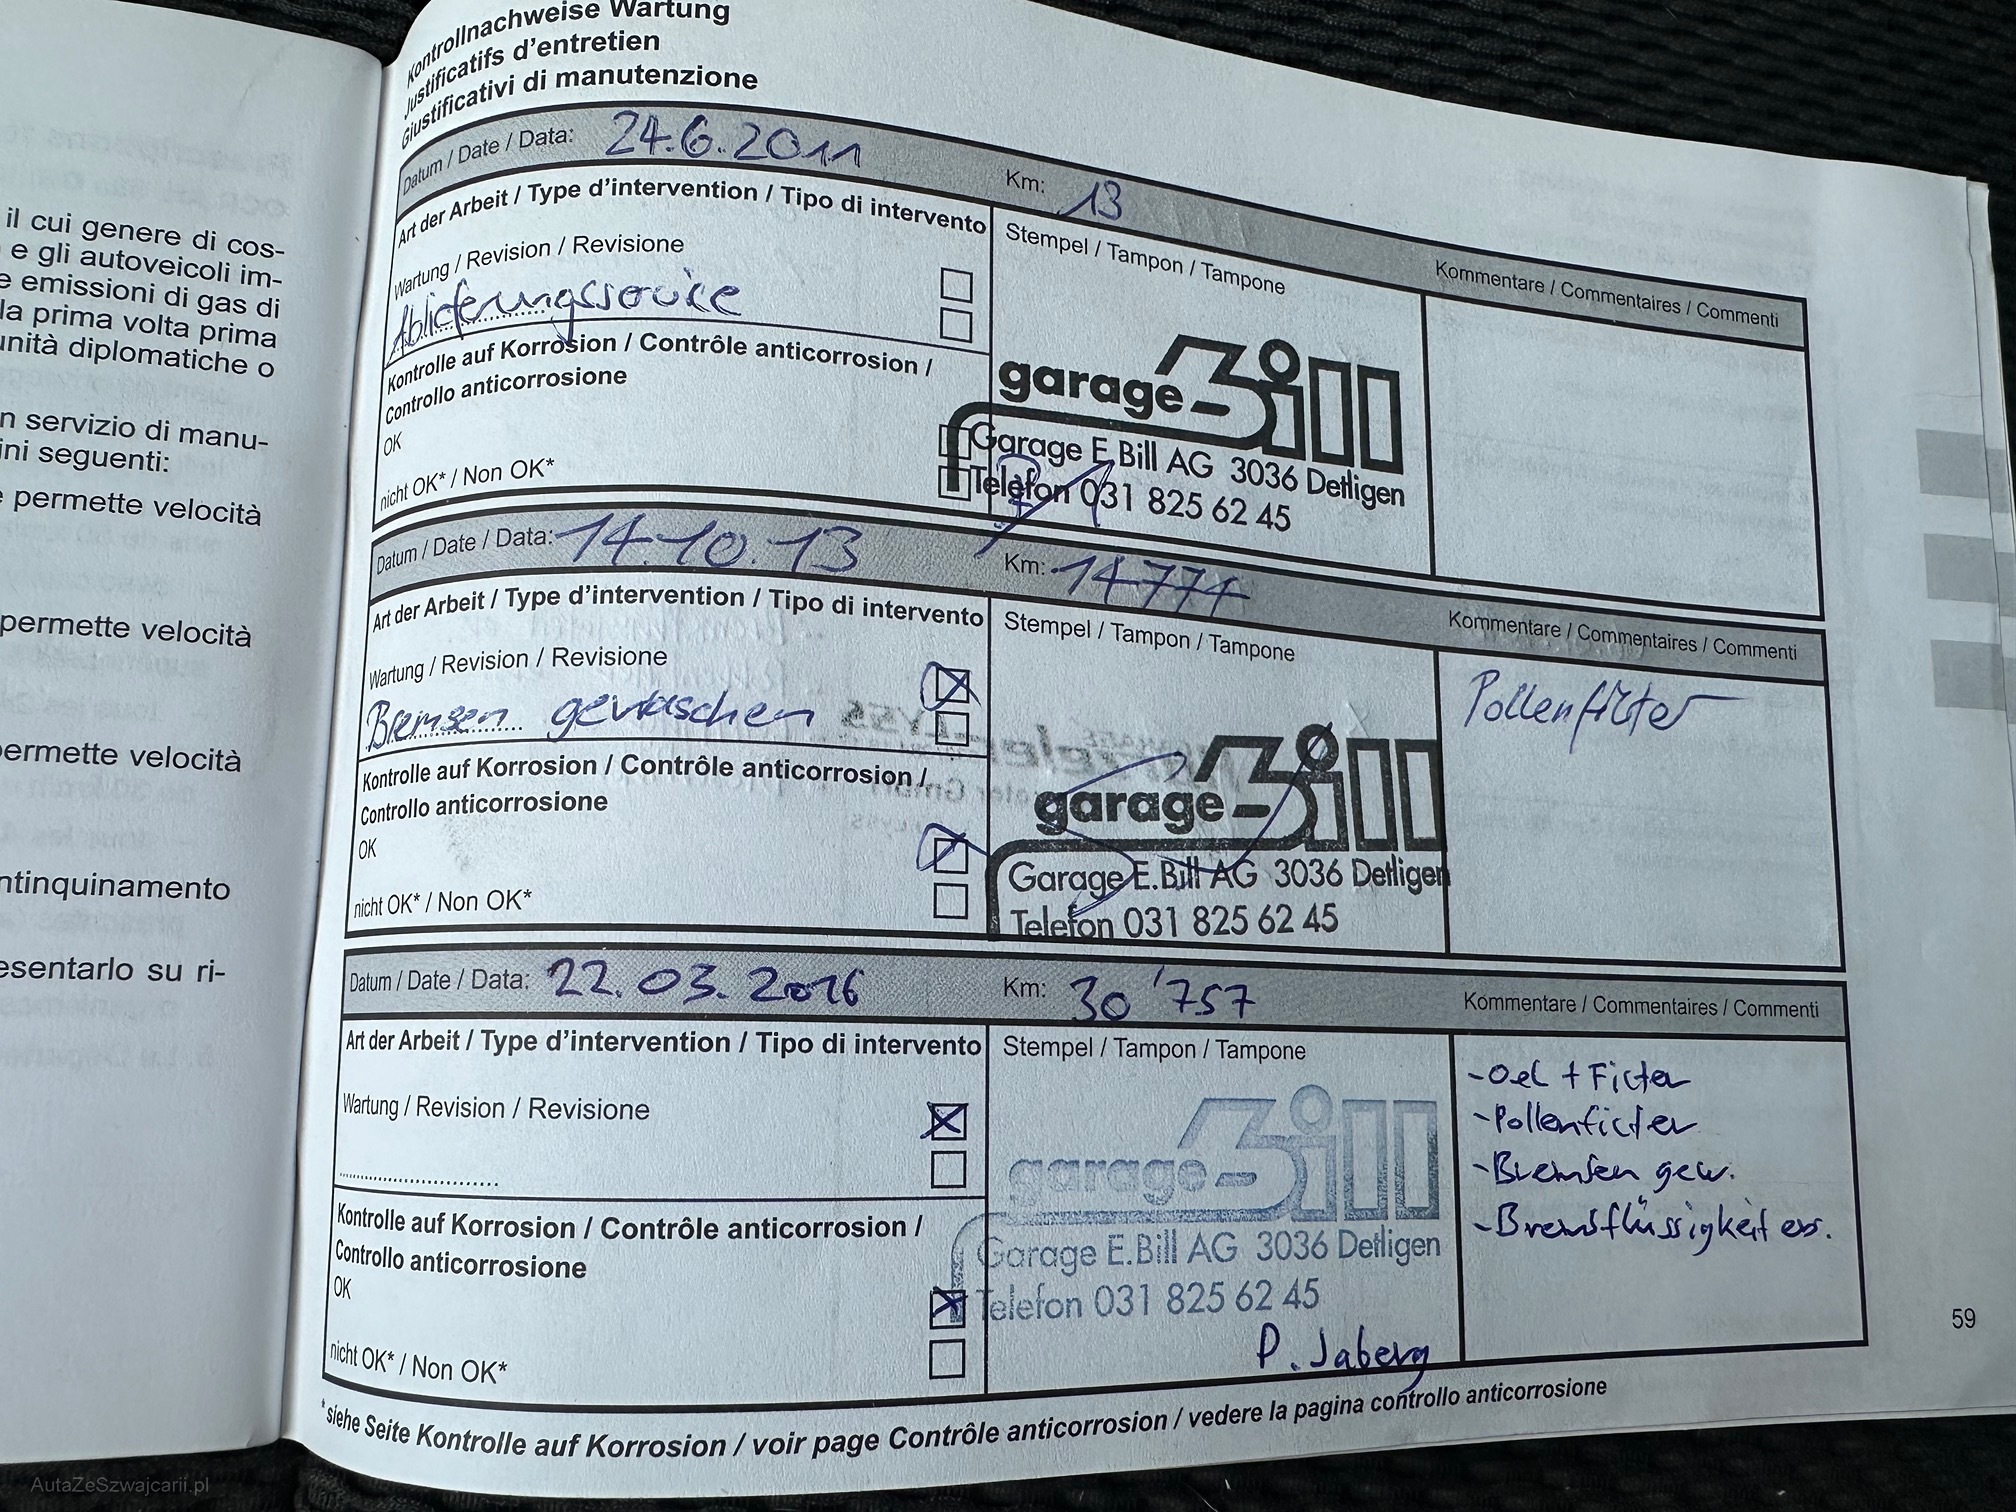 il cui genere di cos-
e gli autoveicoli im-
e emissioni di gas di
la prima volta prima
unità diplomatiche o
n servizio di manu-
ini seguenti:
permette velocità
permette velocità
permette velocità
ntinquinamento
esentarlo su ri-
Kontrollnachweise Wartung
Justificatifs d'entretien
Giustificativi di manutenzione
Datum / Date / Data: 24.6.2011 Km: 13
Kommentare / Commentaires / Commenti
Art der Arbeit / Type d'intervention / Tipo di intervento
Stempel / Tampon / Tampone
Wartung / Revision / Revisione
Ablieferungsservice
Kontrolle auf Korrosion / Contrôle anticorrosion /
Controllo anticorrosione
OK
nicht OK* / Non OK*
garage Bill
Garage E.Bill AG 3036 Detligen
Telefon 031 825 62 45
Datum / Date / Data: 14.10.13 Km: 14774
Kommentare / Commentaires / Commenti
Art der Arbeit / Type d'intervention / Tipo di intervento
Stempel / Tampon / Tampone
Wartung / Revision / Revisione
Bremsen gewaschen
Kontrolle auf Korrosion / Contrôle anticorrosion /
Controllo anticorrosione
OK
nicht OK* / Non OK*
garage Bill
Garage E.Bill AG 3036 Detligen
Telefon 031 825 62 45
Pollenfilter
Datum / Date / Data: 22.03.2016 Km: 30'757
Kommentare / Commentaires / Commenti
Art der Arbeit / Type d'intervention / Tipo di intervento
Stempel / Tampon / Tampone
Wartung / Revision / Revisione
Kontrolle auf Korrosion / Contrôle anticorrosion /
Controllo anticorrosione
OK
nicht OK* / Non OK*
garage Bill
Garage E.Bill AG 3036 Detligen
Telefon 031 825 62 45
P. Jaberg
- Oel + Filter
- Pollenfilter
- Bremsen gew.
- Bremsflüssigkeit ers.
59
*siehe Seite Kontrolle auf Korrosion / voir page Contrôle anticorrosion / vedere la pagina controllo anticorrosione
AutaZeSzwajcarii.pl